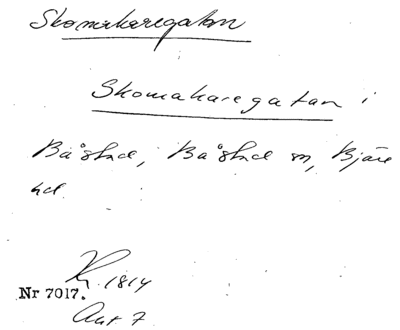 Skomakaregatan
Skomakaregatan i
Båstad, Båstad sn, Bjäre
hd.
Kr. 1814
Nr 7017.
Akt 7